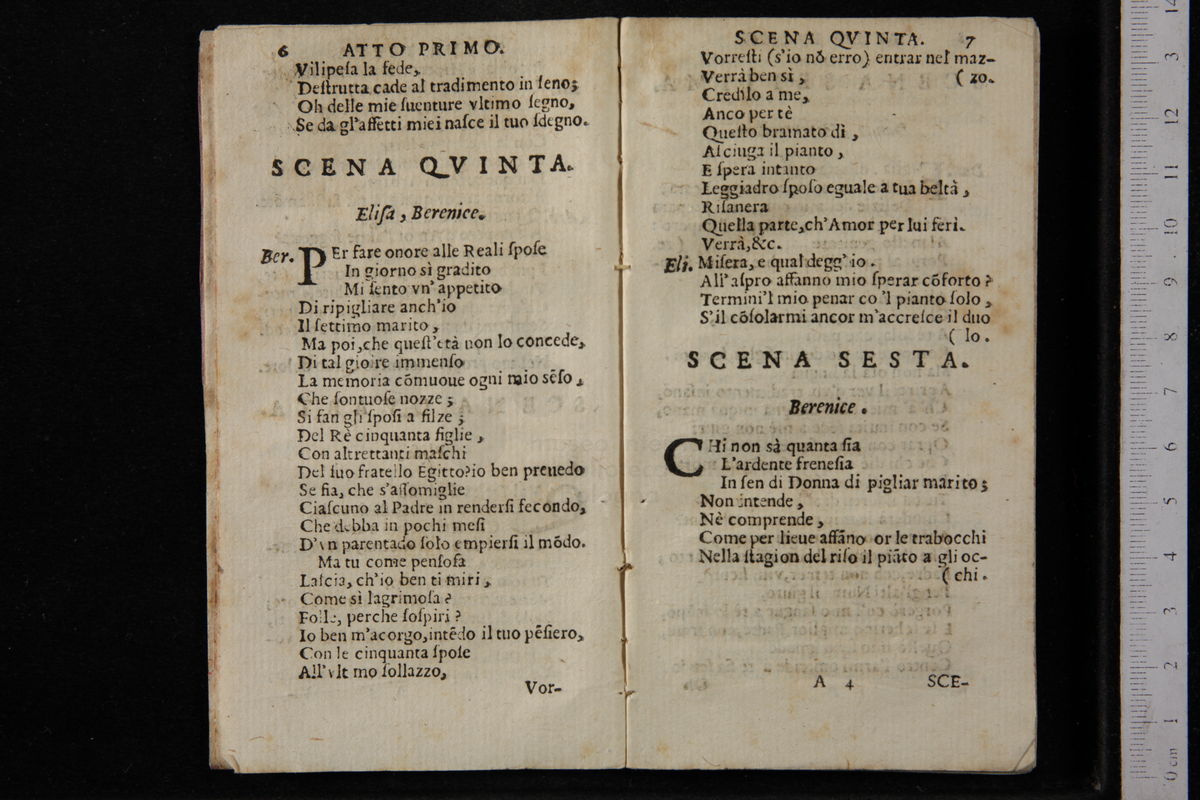 6 ATTO PRIMO.
Vilipeſa la fede,
Deſtrutta cade al tradimento in ſeno;
Oh delle mie ſuenture vltimo ſegno,
Se da gl'affetti miei naſce il tuo ſdegno.
SCENA QVINTA.
Eliſa, Berenice.
Ber. PEr fare onore alle Reali ſpoſe
In giorno sì gradito
Mi ſento vn' appetito
Di ripigliare anch'io
Il ſettimo marito,
Ma poi, che queſt'età non lo concede,
Di tal gioire immenſo
La memoria cõmuoue ogni mio sẽſo,
Che ſontuoſe nozze;
Si fan gli ſpoſi a filze;
Del Rè cinquanta figlie,
Con altrettanti maſchi
Del ſuo fratello Egitto? io ben preuedo
Se fia, che s'aſſomiglie
Ciaſcuno al Padre in renderſi fecondo,
Che debba in pochi meſi
D'vn parentado ſolo empierſi il mõdo.
Ma tu come penſoſa
Laſcia, ch'io ben ti miri,
Come sì lagrimoſa?
Folle, perche ſoſpiri?
Io ben m'acorgo, intẽdo il tuo pẽſiero,
Con le cinquanta ſpoſe
All'vltimo ſollazzo,
Vor-
SCENA QVINTA. 7
Vorreſti (s'io nõ erro) entrar nel maz-
Verrà ben sì, (zo.
Credilo a me,
Anco per tè
Queſto bramato dì,
Aſciuga il pianto,
E ſpera intanto
Leggiadro ſpoſo eguale a tua beltà,
Riſanera
Quella parte, ch'Amor per lui ferì.
Verrà, &c.
Eli. Miſera, e qual degg' io.
All'aſpro affanno mio ſperar cõforto?
Termini'l mio penar co'l pianto ſolo,
S'il cõſolarmi ancor m'accreſce il duo
(lo.
SCENA SESTA.
Berenice.
CHi non sà quanta ſia
L'ardente freneſia
In ſen di Donna di pigliar marito;
Non intende,
Nè comprende,
Come per lieue affãno or le trabocchi
Nella ſtagion del riſo il piãto a gli oc-
(chi.
A 4 SCE-